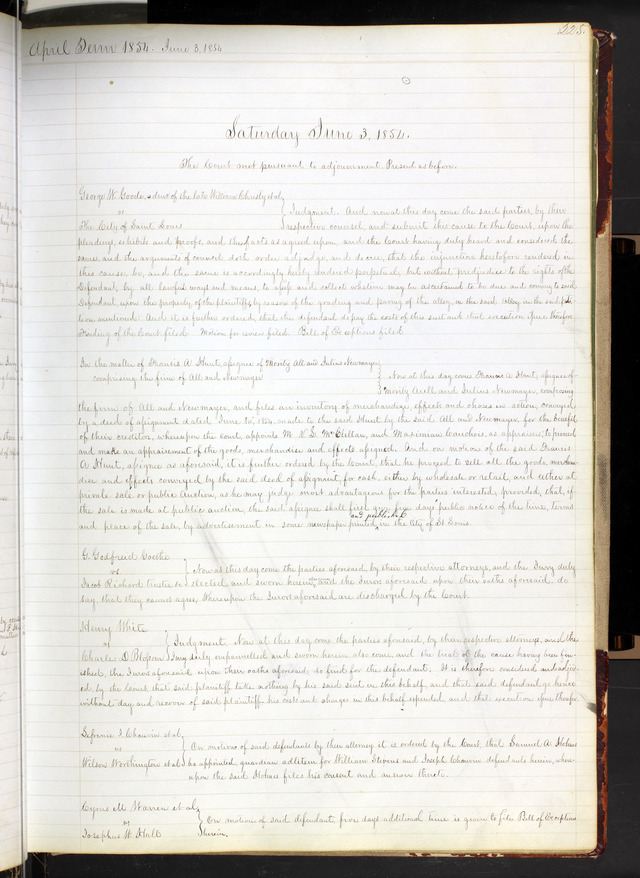 225.
April Term 1854. June 3, 1854
Saturday June 3, 1854.
The Court met pursuant to adjournment Present as before.
George W. Goode, admr of the late William Christy et al
vs
The City of Saint Louis
Judgment. And now at this day come the said parties, by their
respective counsel, and submit the cause to the Court, upon the
pleadings, exhibits and proofs, and the facts as agreed upon, and the Court having duly heard and considered the
same, and the arguments of counsel, doth order, adjudge, and decree, that the injunction heretofore rendered in
this cause, be, and the same is accordingly hereby rendered perpetual, but without prejudice to the rights of the
Defendant, by all lawful ways and means, to assess and collect whatever may be ascertained to be due and coming to said
Defendant, upon the property of the plaintiffs, by reason of the grading and paving of the alley, in the said
mentioned. And it is further ordered, that the defendant do pay the costs of this suit and that execution issue therefor.
Finding of the Court filed. Motion for review filed. Bill of Exceptions filed.
In the matter of Francis A Hunt, assignee of Moritz All and Julius Newmayer,
comprising the firm of All and Newmayer
Now at this day come Francis A Hunt, assignee of
Moritz All and Julius Newmayer, comprising
the firm of All and Newmayer, and files an inventory of merchandize, effects and choses in action, conveyed
by a deed of assignment dated June 1st, 1854, made to the said Hunt by the said All and Newmayer, for the benefit
of their creditors, whereupon the Court, appoints Wm N. L. McClellan, and Maximian, as appraisers, to proceed
and make an appraisement of the goods, merchandize and effects assigned. And on motion of the said Francis
A Hunt, assignee as aforesaid, it is further ordered by the Court, that he proceed to sell all the goods, merchan-
dize and effects conveyed by the said deed of assignment, for cash, either by wholesale or retail, and either at
private sale or public Auction, as he may judge most advantageous for the parties interested, provided, that, if
the sale is made at public auction, the said assignee shall first give five days public notice of the time, terms
and place of the sale, by advertisement in some newspaper printed and published in the City of St Louis.
G. Godfreid Coethe
vs
Jacob Richard trustee &c
Now at this day come the parties aforesaid by their respective attorneys, and the Jury duly
elected, and sworn herein, and the Jurors aforesaid upon their oaths aforesaid, do
say, that they cannot agree, thereupon the Jurors aforesaid are discharged by the Court.
Henry White
vs
Charles D. Blossom
Judgment. Now at this day come the parties aforesaid, by their respective attorneys, and the
Jury duly empannelled and sworn herein also come, and the trial of the cause having been fin-
ished, the Jurors aforesaid upon their oaths aforesaid, do find for the defendant. It is therefore considered and adjudg-
ed by the Court, that said plaintiff take nothing by his said suit in this behalf, and that said defendant go hence
without day and recover of said plaintiff, his costs and charges in this behalf expended and that execution issue therefor.
Sefronie J. Chouvin et al,
vs
Wilson Worthington et als
On motion of said defendants by their attorney it is ordered by the Court, that Samuel A. Holmes
be appointed guardian adlitem for William Stevens and Joseph Chouvin defendants herein, where-
upon the said Holmes files his consent and answer therein.
Cyrus M Warren et al,
vs
Josephus W. Hall
On motion of said defendant, five days additional time is given to file Bill of Exceptions
herein.